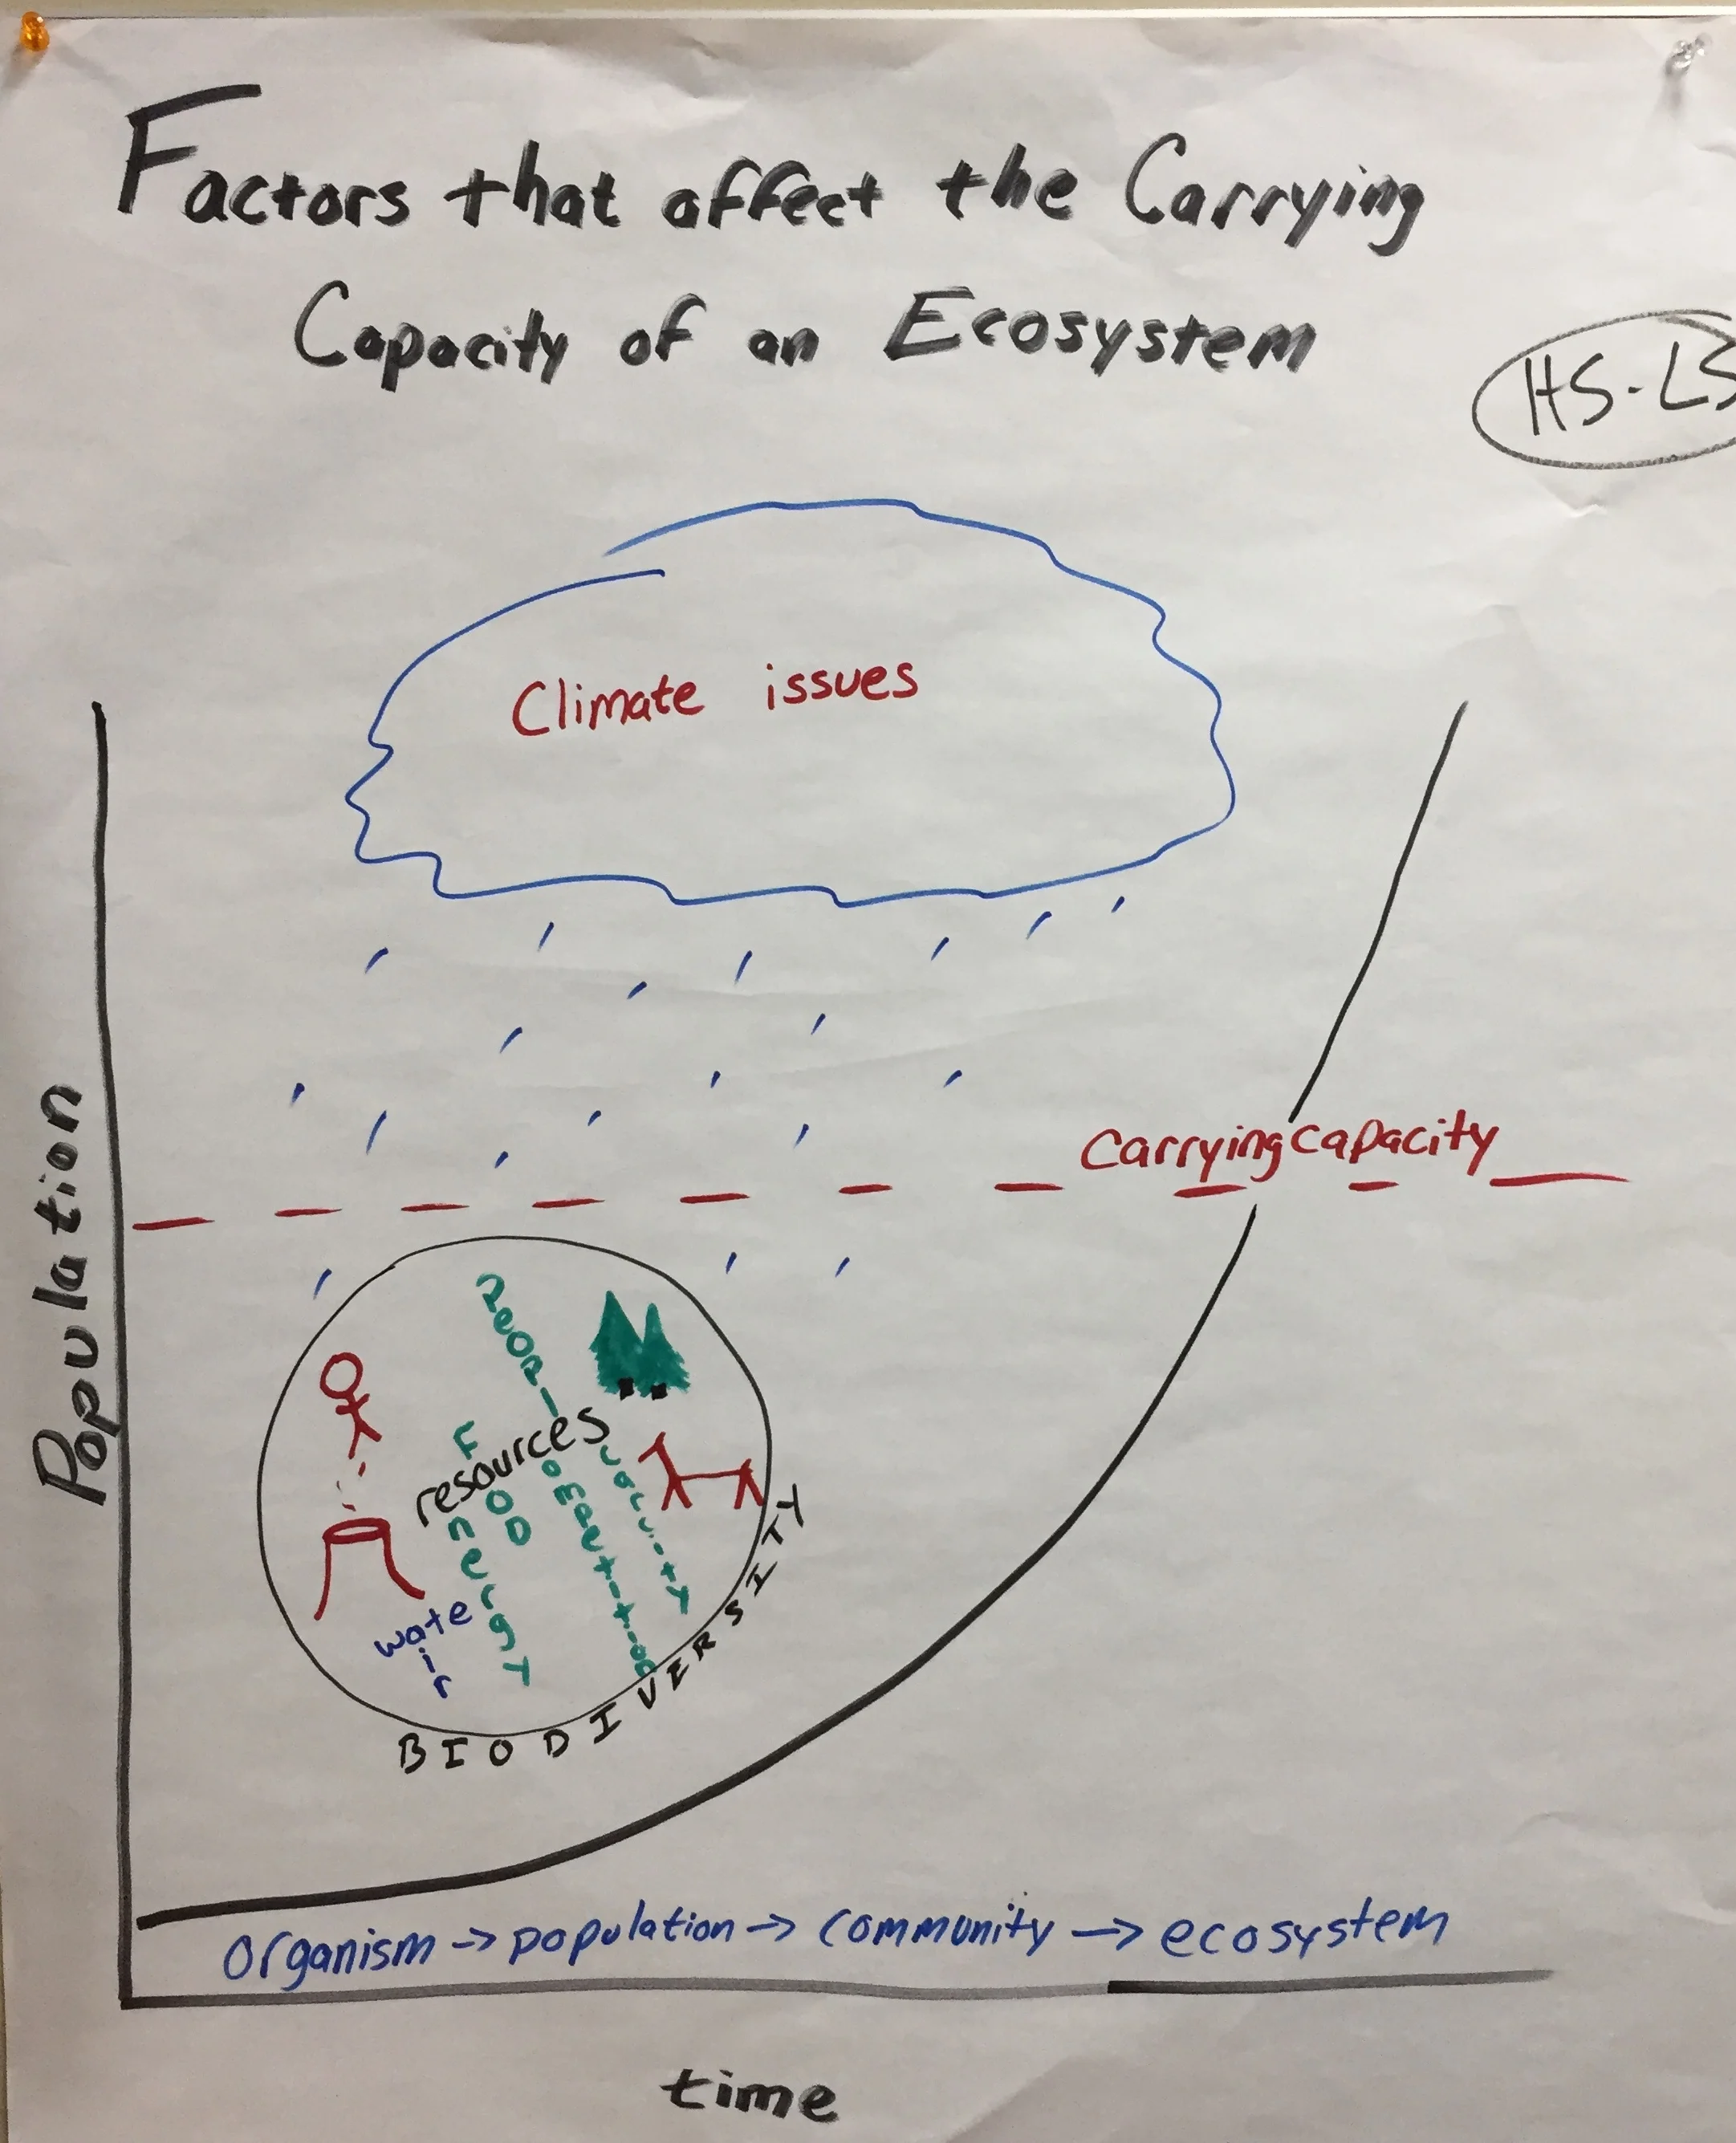 Factors that affect the Carrying
Capacity of an Ecosystem
HS-LS
Climate issues
Carrying capacity
Population
PEOPle
resources
FOOD
energy
competition
scarcity
wate
air
BIODIVERSITY
organism → population → community → ecosystem
time